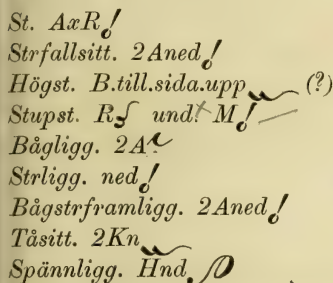 St. AxR
Strfallsitt. 2Aned
Högst. B.till.sida.upp (?)
Stupst. R und. M
Bågligg. 2A
Strligg. ned
Bågstrframligg. 2Aned
Tåsitt. 2Kn
Spännligg. Hnd